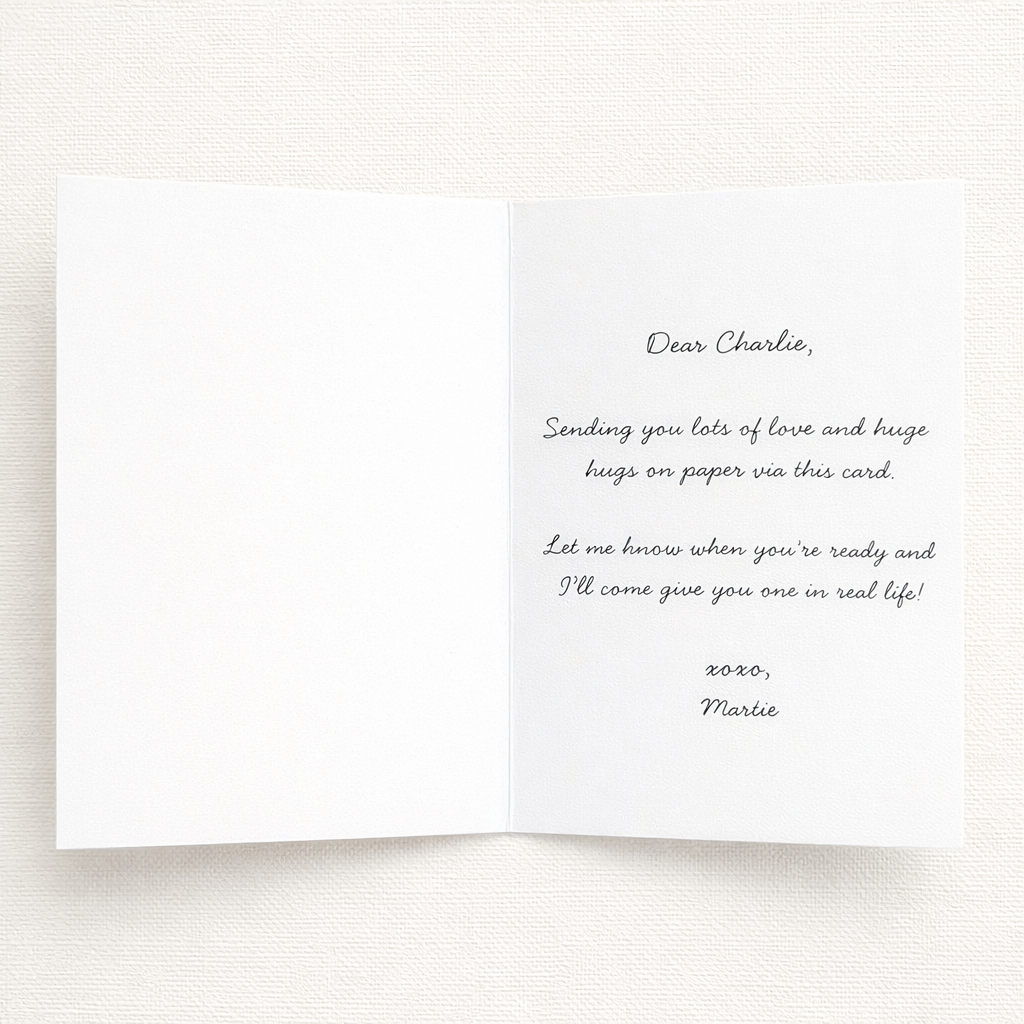 Dear Charlie,
Sending you lots of love and huge
hugs on paper via this card.
Let me know when you're ready and
I'll come give you one in real life!
xoxo,
Martie